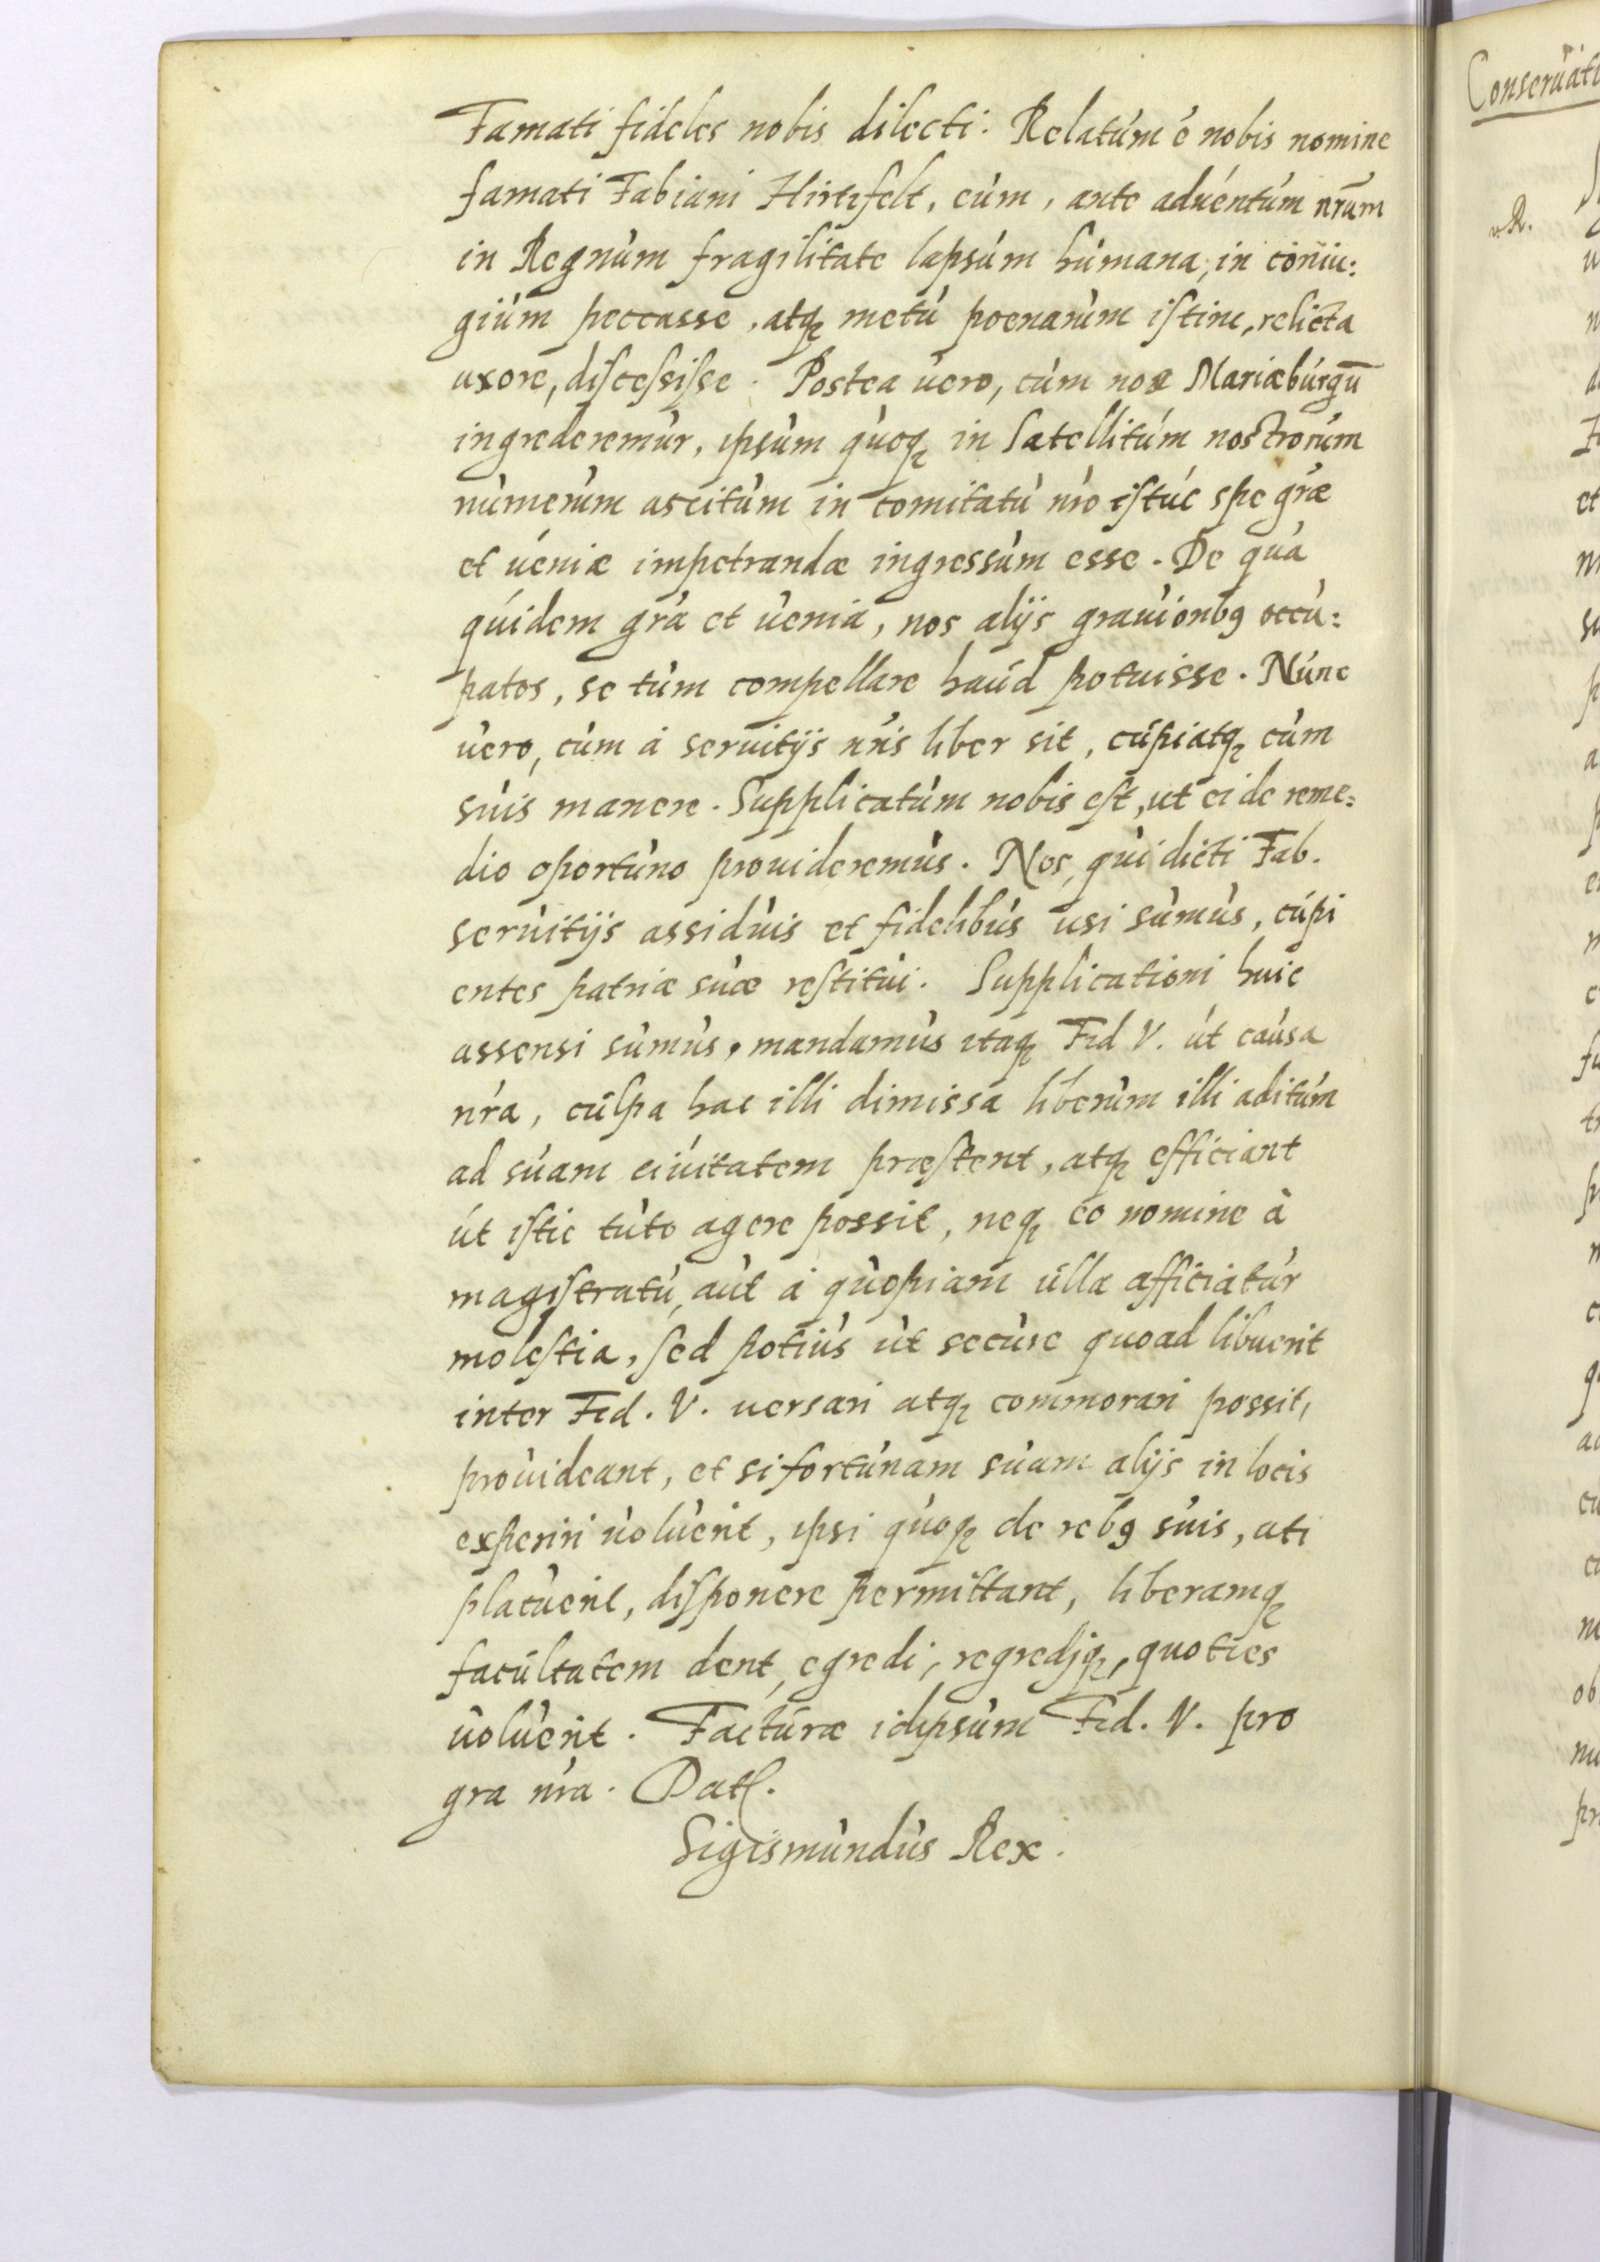 Famati fideles nobis dilecti. Relatum ē nobis nomine
famati Fabiani Hirtzfelt, eum, ante aduentum nr̄um
in Regnum fragilitate lapsum humana, in coniu:
gium peccasse, atq; metu poenarum istinc, relicta
uxore, discessisse. Postea uero, cum nos Mariaeburgū
ingrederemur, ipsum quoq; in Satellitum nostrorum
numerum ascitum in comitatu nr̄o istuc spe gr̄æ
et ueniæ impetrandæ ingressum esse. De qua
quidem gr̄a et uenia, nos alijs grauiorib9 occu:
patos, se tum compellare haud potuisse. Nunc
uero, cum à seruitijs nr̄is liber sit, cupiatq; cum
suis manere. Supplicatum nobis est, ut ei de reme:
dio oportuno prouideremus. Nos, qui dicti Fab.
seruitijs assiduis et fidelibus usi sumus, cupi
entes patriæ suæ restitui. Supplicationi huic
assensi sumus, mandamus itaq; Fid V. ut causa
nr̄a, culpa hac illi dimissa liberum illi aditum
ad suam ciuitatem præstent, atq; efficiant
ut istic tuto agere possit, neq; eo nomine à
magistratu, aut à quopiam ulla afficiatur
molestia, sed potius ut secure quoad libuerit
inter Fid. V. uersari atq; commorari possit,
prouideant, et si fortunam suam alijs in locis
experiri uoluerit, ipsi quoq; de reb9 suis, uti
placuerit, disponere permittant, liberamq;
facultatem dent, egredi, regredjq;, quoties
uoluerit. Facturæ idipsum Fid. V. pro
gra nr̄a. Dat.
Sigismundus Rex.
Conseruati
R.